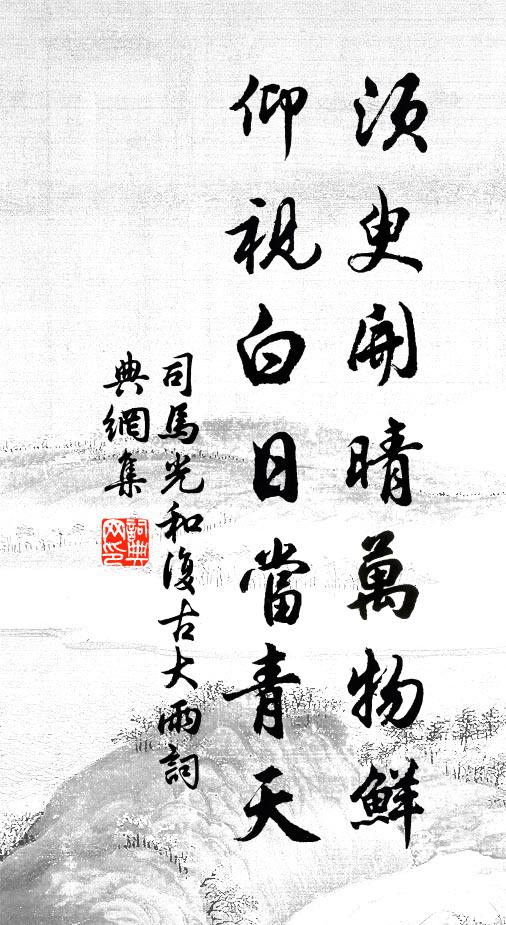 須臾開晴萬物鮮
仰視白日當青天
司馬光和復古大雨詞
典網集
詞典
网印